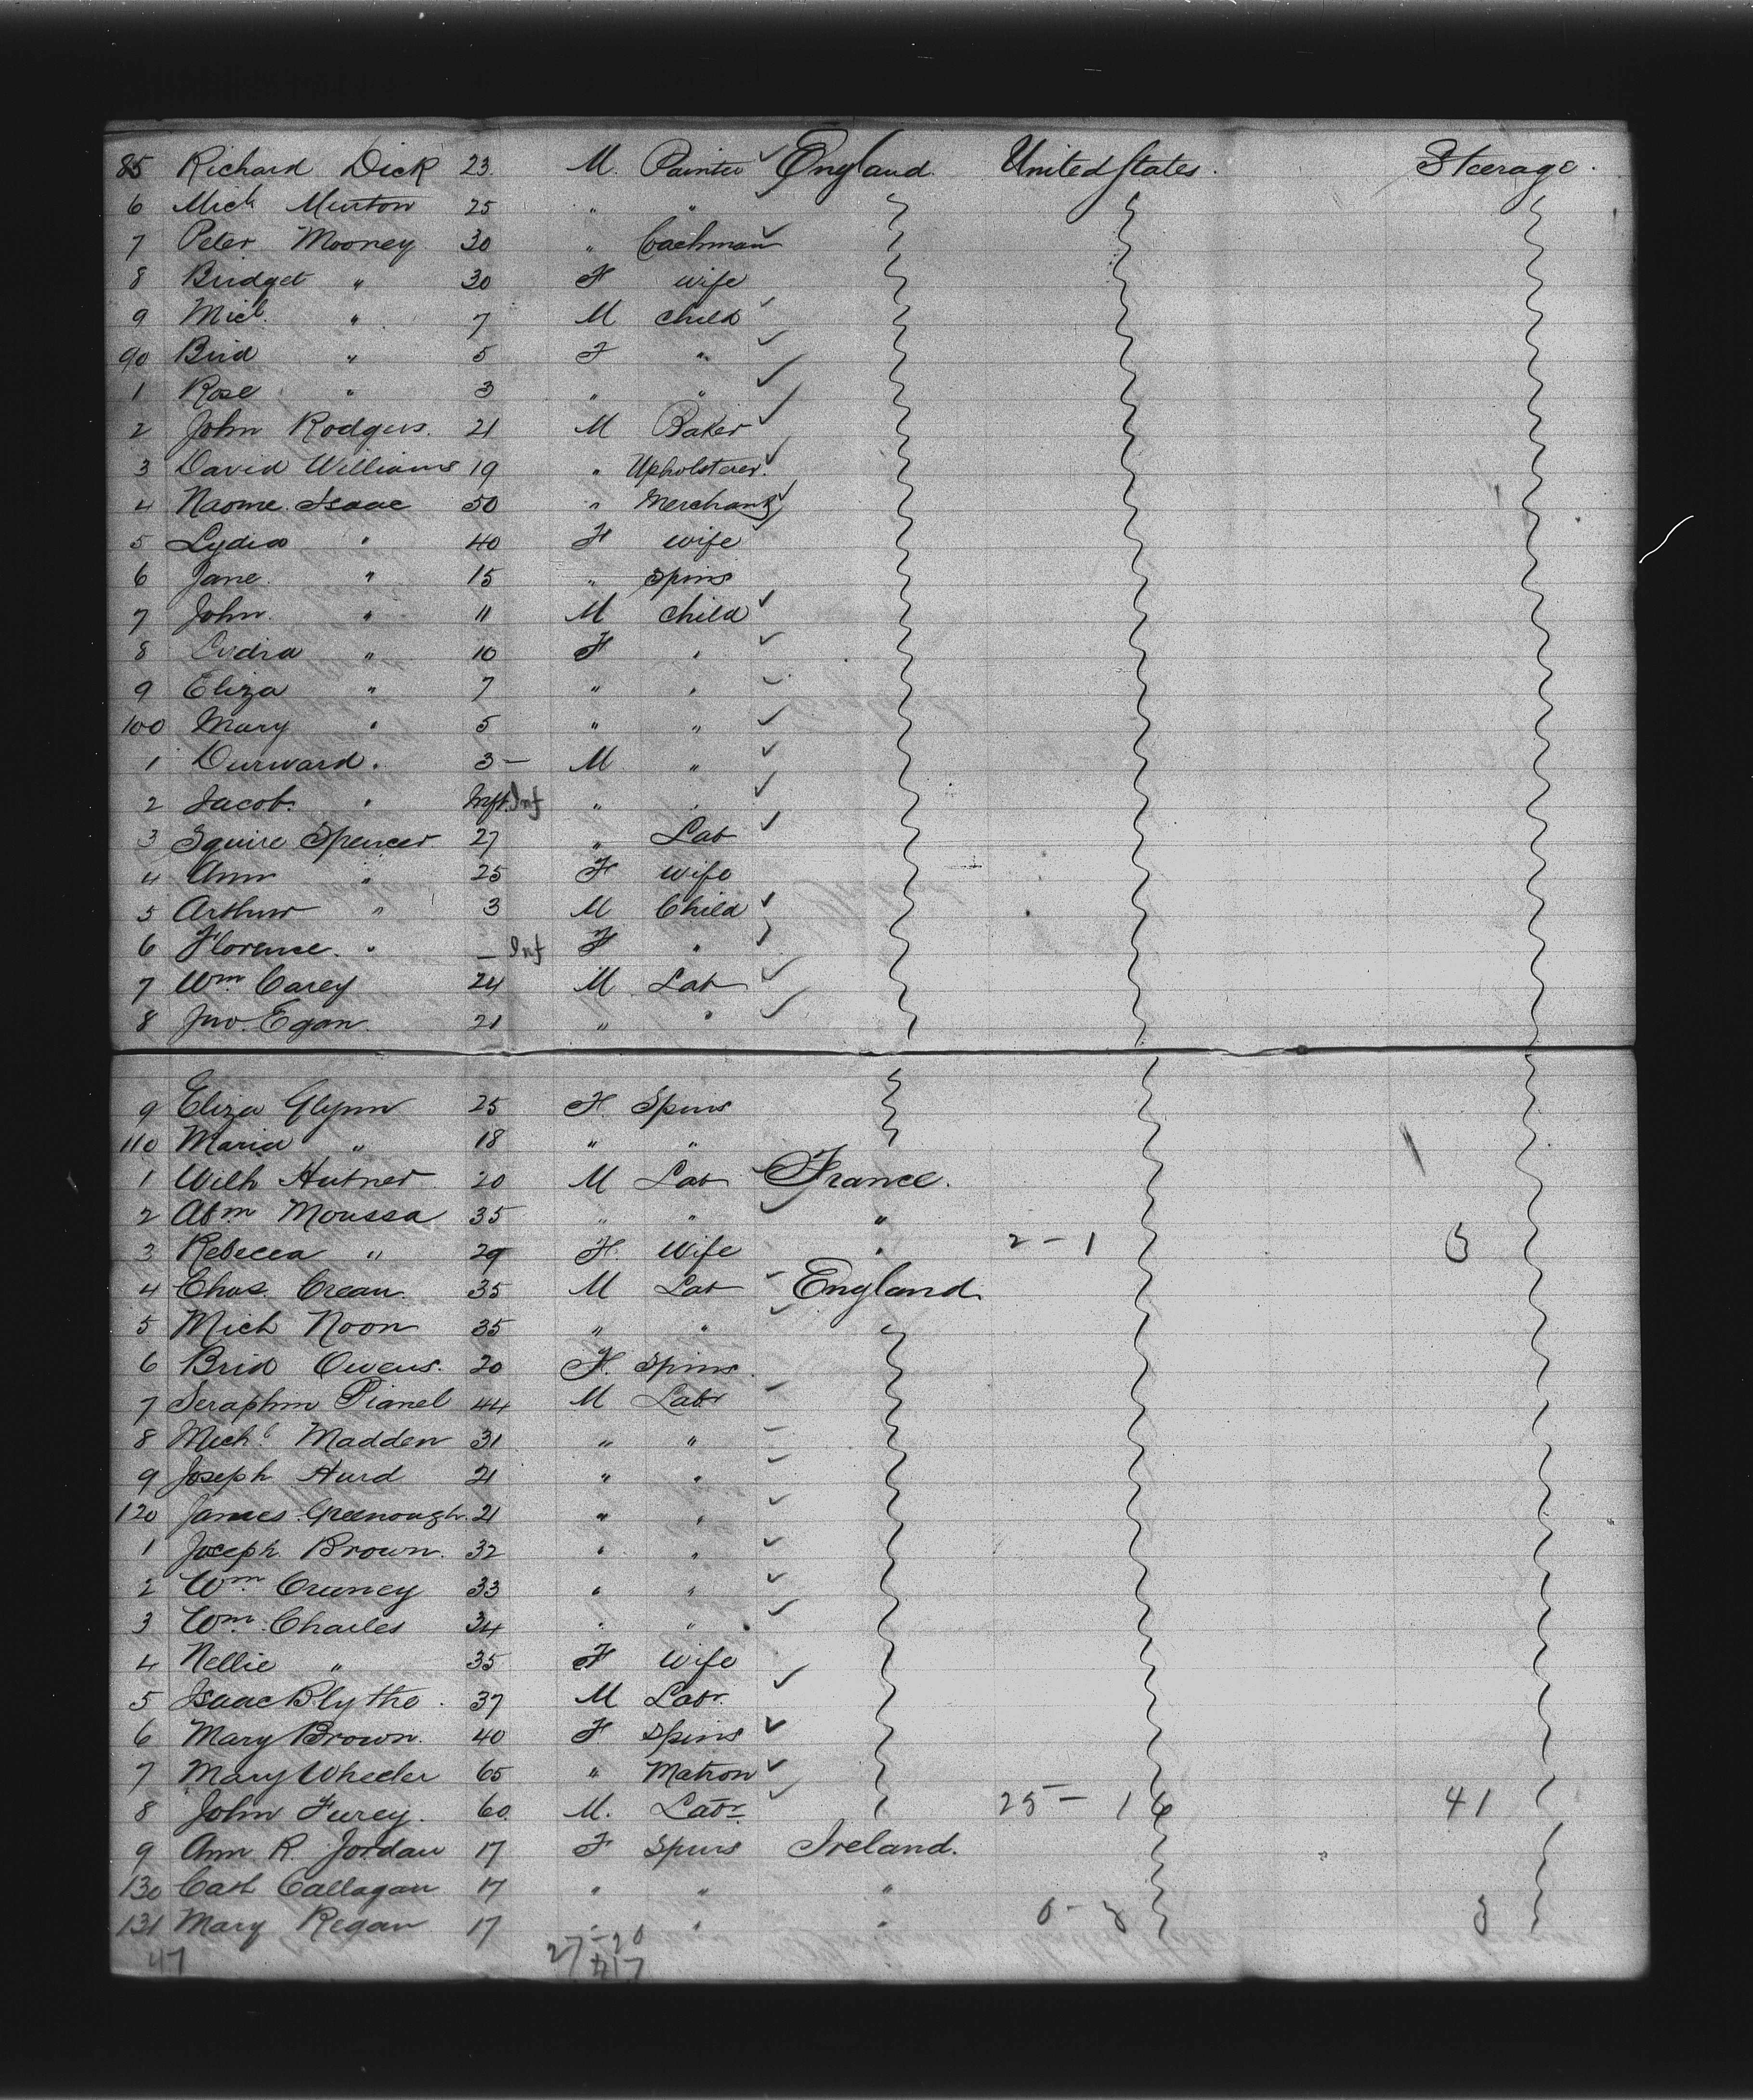 85 Richard Dick 23. M. Painter England. United States. Steerage.
6 Mich Murton 25 " "
7 Peter Mooney 30 " Coachman
8 Bridget " 30 F wife
9 Michl " 7 M child
90 Brid " 5 F "
1 Rose " 3 " "
2 John Rodgers. 21 M Baker
3 David Williams 19 " Upholsterer.
4 Naome Isaac 50 " Merchant
5 Lydia " 40 F wife
6 Jane " 15 " Spins
7 John " 11 M child
8 Lydia " 10 F "
9 Eliza " 7 " "
100 Mary " 5 " "
1 Durward " 3 — M "
2 Jacob " Inft. Inf " "
3 Squire Spencer 27 " Lab
4 Ann " 25 F wife
5 Arthur " 3 M Child
6 Florence " — Inf F "
7 Wm Carey 24 M Lab
8 Jno. Egan 21 " "
9 Eliza Glynn 25 F. Spins
110 Maria " 18 " "
1 Wilh Hutner 20 M Lab France.
2 Abm Moussa 35 " " "
3 Rebecca " 29 F. Wife " 2 - 1 3
4 Chas. Crean. 35 M Lab England.
5 Mich Noon 35 " "
6 Brid Owens. 20 F. Spins
7 Seraphin Pianel 44 M Labr
8 Michl Madden 31 " "
9 Joseph Hurd 21 " "
120 James Greenough. 21 " "
1 Joseph Brown. 32 " "
2 Wm Cruney 33 " "
3 Wm Charles 34 " "
4 Nellie " 35 F Wife
5 Isaac Blythe. 37 M Labr.
6 Mary Brown. 40 F Spins
7 Mary Wheeler 65 " Matron
8 John Furey. 60 M. Labr. 25 - 16 41
9 Ann R. Jordan 17 F Spins Ireland.
130 Cath Callagan 17 " " "
131 Mary Regan 17 " " " 0 - 3 3
47 27 - 20
47